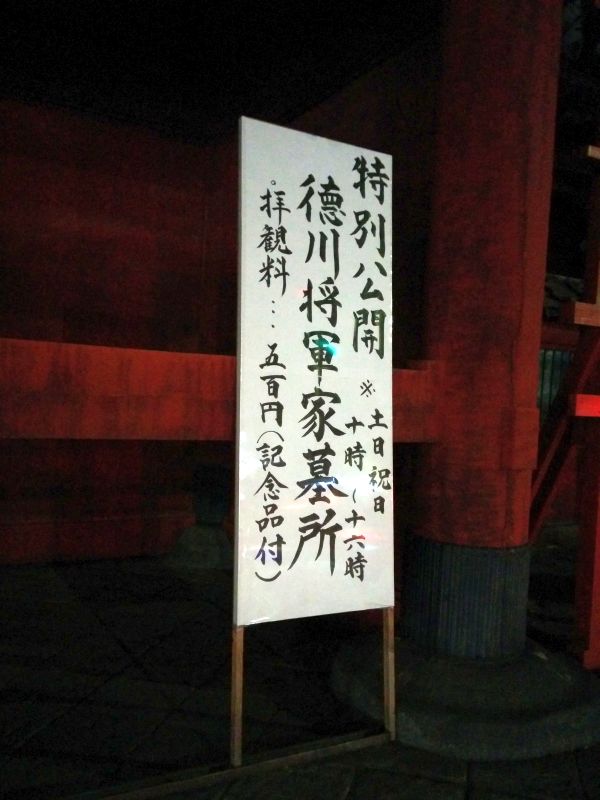 特別公開
※土日祝日
十時〜十六時
徳川将軍家墓所
。拝観料…五百円(記念品付)